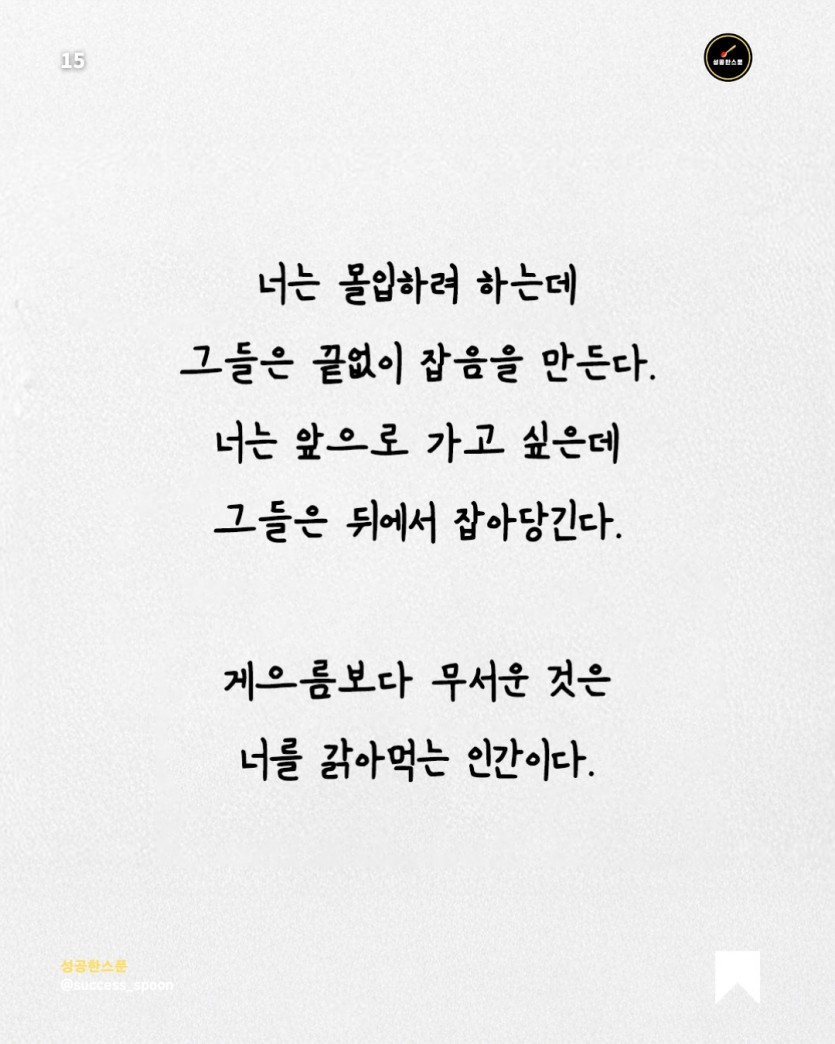 15
성공한스푼
너는 몰입하려 하는데
그들은 끝없이 잡음을 만든다.
너는 앞으로 가고 싶은데
그들은 뒤에서 잡아당긴다.
게으름보다 무서운 것은
너를 갉아먹는 인간이다.
성공한스푼
@success_spoon